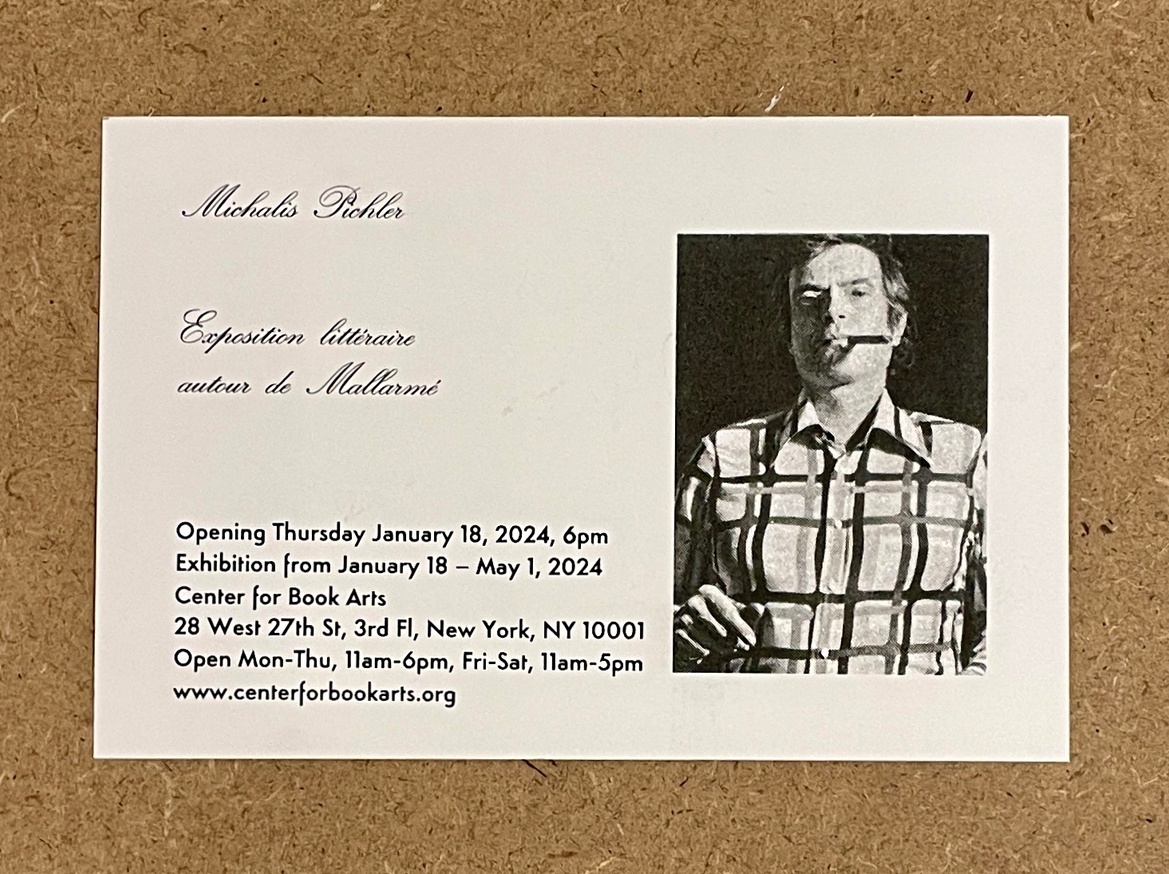 Michalis Pichler
Exposition littéraire
autour de Mallarmé
Opening Thursday January 18, 2024, 6pm
Exhibition from January 18 – May 1, 2024
Center for Book Arts
28 West 27th St, 3rd Fl, New York, NY 10001
Open Mon-Thu, 11am-6pm, Fri-Sat, 11am-5pm
www.centerforbookarts.org